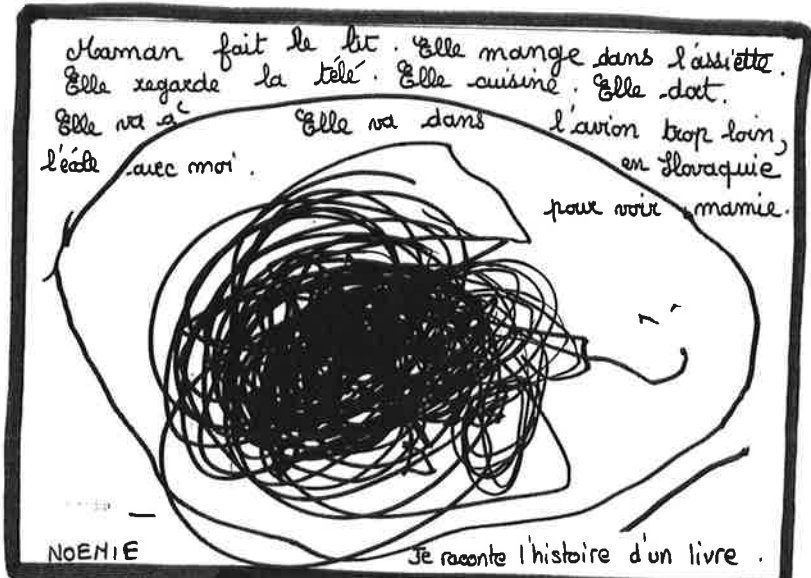 Maman fait le lit. Elle mange dans l'assiette.
Elle regarde la télé. Elle cuisine. Elle dort.
Elle va à Elle va dans l'avion trop loin,
l'école avec moi. en Slovaquie
pour voir mamie.
NOEMIE Je raconte l'histoire d'un livre.